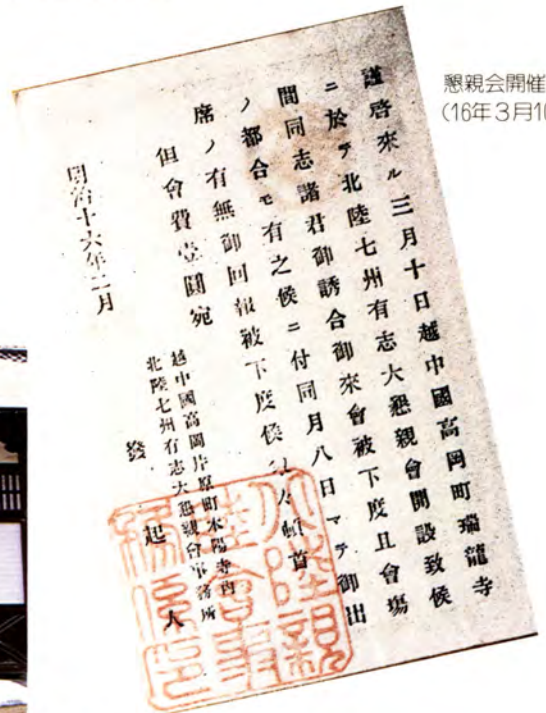 懇親会開催
(16年3月10
謹啓來ル三月十日越中國高岡町瑞龍寺
ニ於テ北陸七州有志大懇親會開設致候
間同志諸君御誘合御來會被下度且會塲
ノ都合モ有之候ニ付同月八日マデ御出
席ノ有無御回報被下度候 頓首
但會費壹圓宛
明治十六年二月
越中國高岡片原町本陽寺內
北陸七州有志大懇親會事務所
發起人